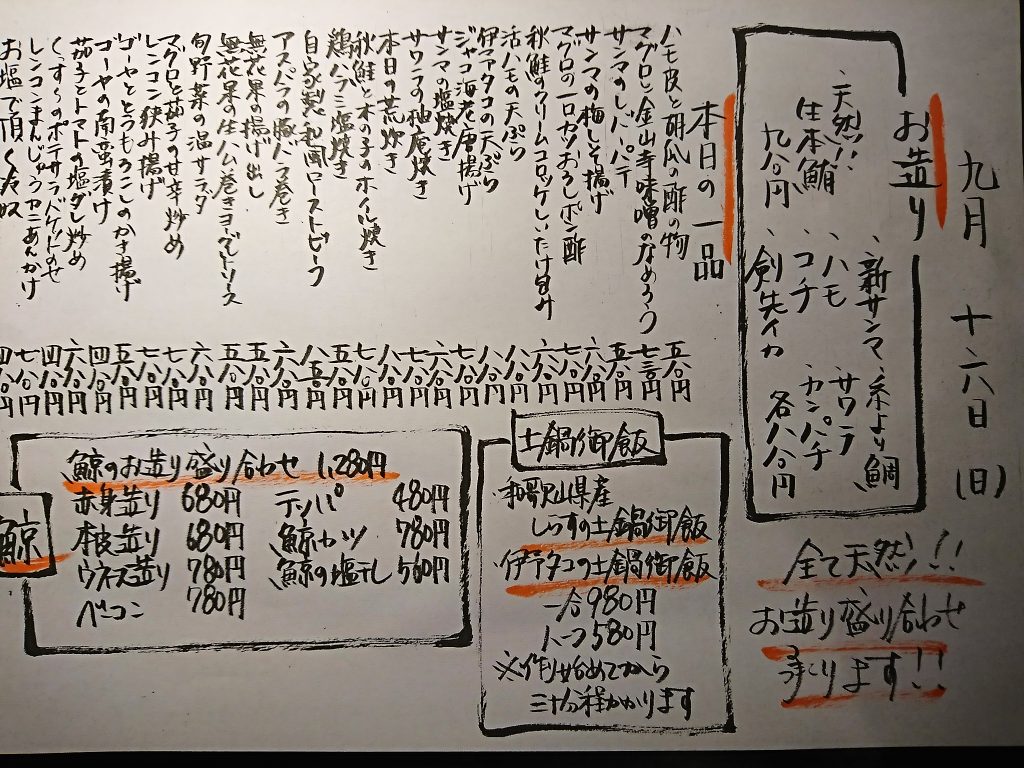 九月 十六日 (日)
お造り
、新サンマ 、糸より鯛
、ハモ 、サワラ
、コチ 、カンパチ
、剣先イカ 各八八〇円
、天然!!
生本鮪
九八〇円
全て天然!!
お造り盛り合わせ
承ります!!
本日の一品
ハモ皮と胡瓜の酢の物
マグロと金山寺味噌のなめろう
サンマのレバーパテ
サンマの梅しそ揚げ
マグロの一口カツおろしポン酢
秋鮭のクリームコロッケしいたけ包み
活ハモの天ぷら
伊予タコの天ぷら
ジャコ海老唐揚げ
サンマの塩焼き
サワラの柚庵焼き
本日の荒炊き
秋鮭と木の子のホイル焼き
鶏ハラミ塩焼き
自家製和風ローストビーフ
アスパラの豚バラ巻き
無花果の揚げ出し
無花果の生ハム巻きヨーグルトソース
旬野菜の温サラダ
マグロと茄子の甘辛炒め
レンコン挟み揚げ
ゴーヤととうもろこしのかき揚げ
ゴーヤの南蛮漬け
茄子とトマトの塩ダレ炒め
くんすものポテサラバケットのせ
レンコンまんじゅうカニあんかけ
お塩で頂く冷奴
土鍋御飯
和歌山県産
しらすの土鍋御飯
伊予タコの土鍋御飯
一合980円
ハーフ580円
※作り始めてから
三十分程かかります
鯨
鯨のお造り盛り合わせ 1,280円
赤身造り 680円 テッパ 480円
本皮造り 680円 鯨カツ 780円
ウネス造り 780円 鯨の塩干し 560円
ベーコン 780円